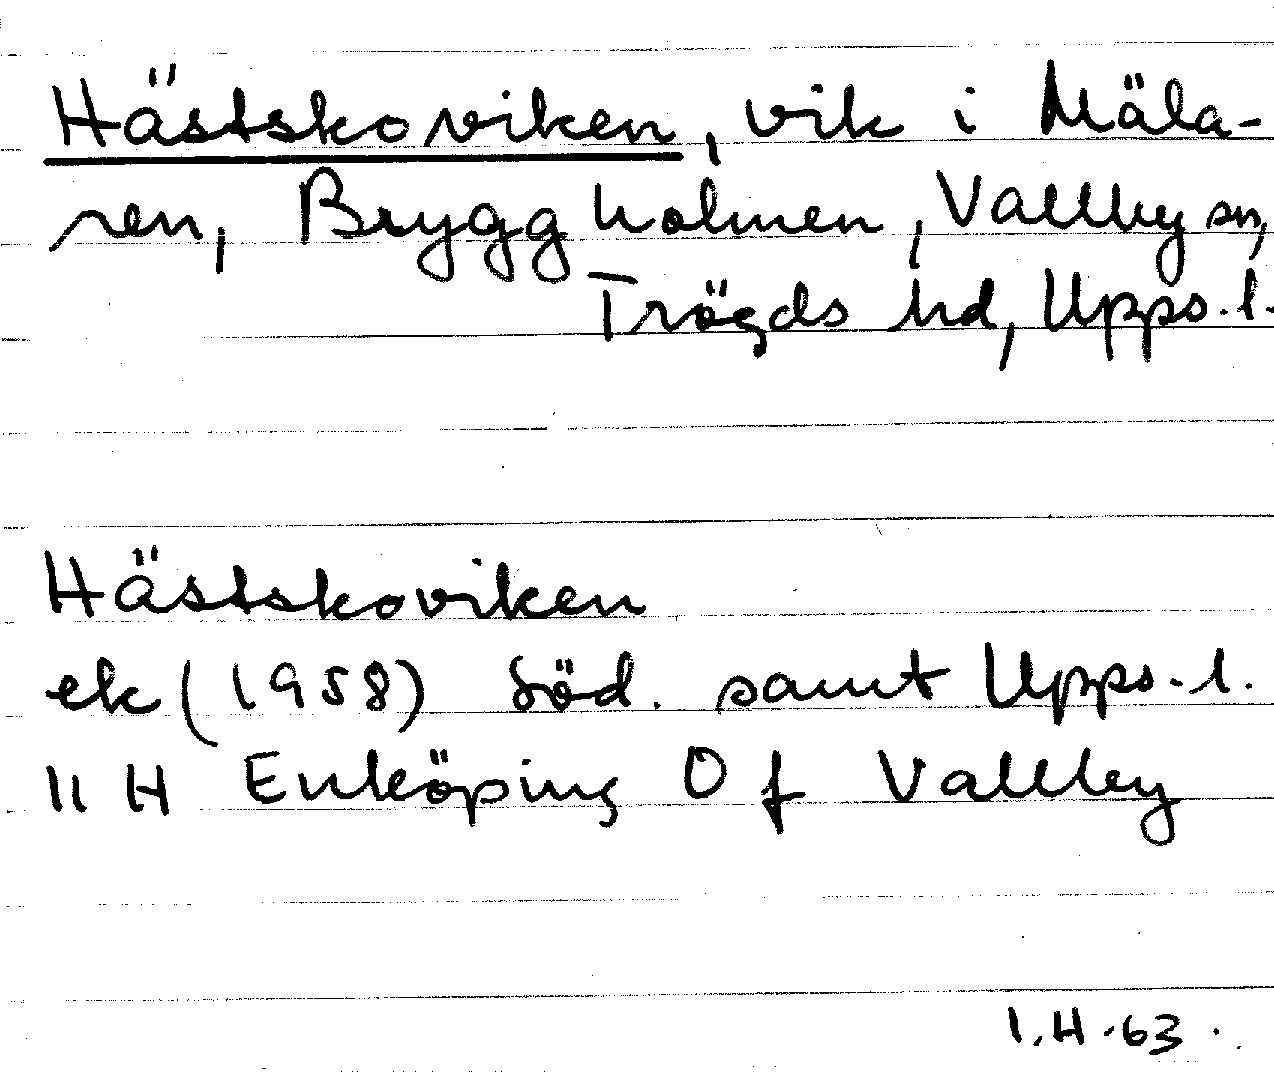 Hästskoviken, vik i Mäla-
ren, Bryggholmen, Vallby sn,
Trögds hd, Upps. l.
Hästskoviken
ek (1958) Söd. samt Upps. l.
11 H Enköping 0 f Vallby
I.H. 63.